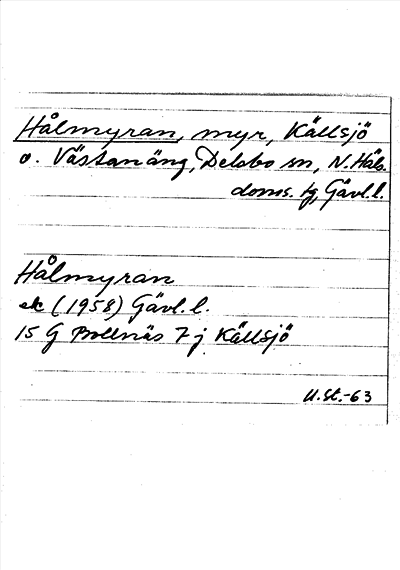 Hålmyran, myr, Källsjö
o. Västanäng, Delsbo sn, N. Häls.
doms. tg, Gävl. l.
Hålmyran
ek (1958) Gävl. l.
15 G Bollnäs 7 j Källsjö
U.St.-63